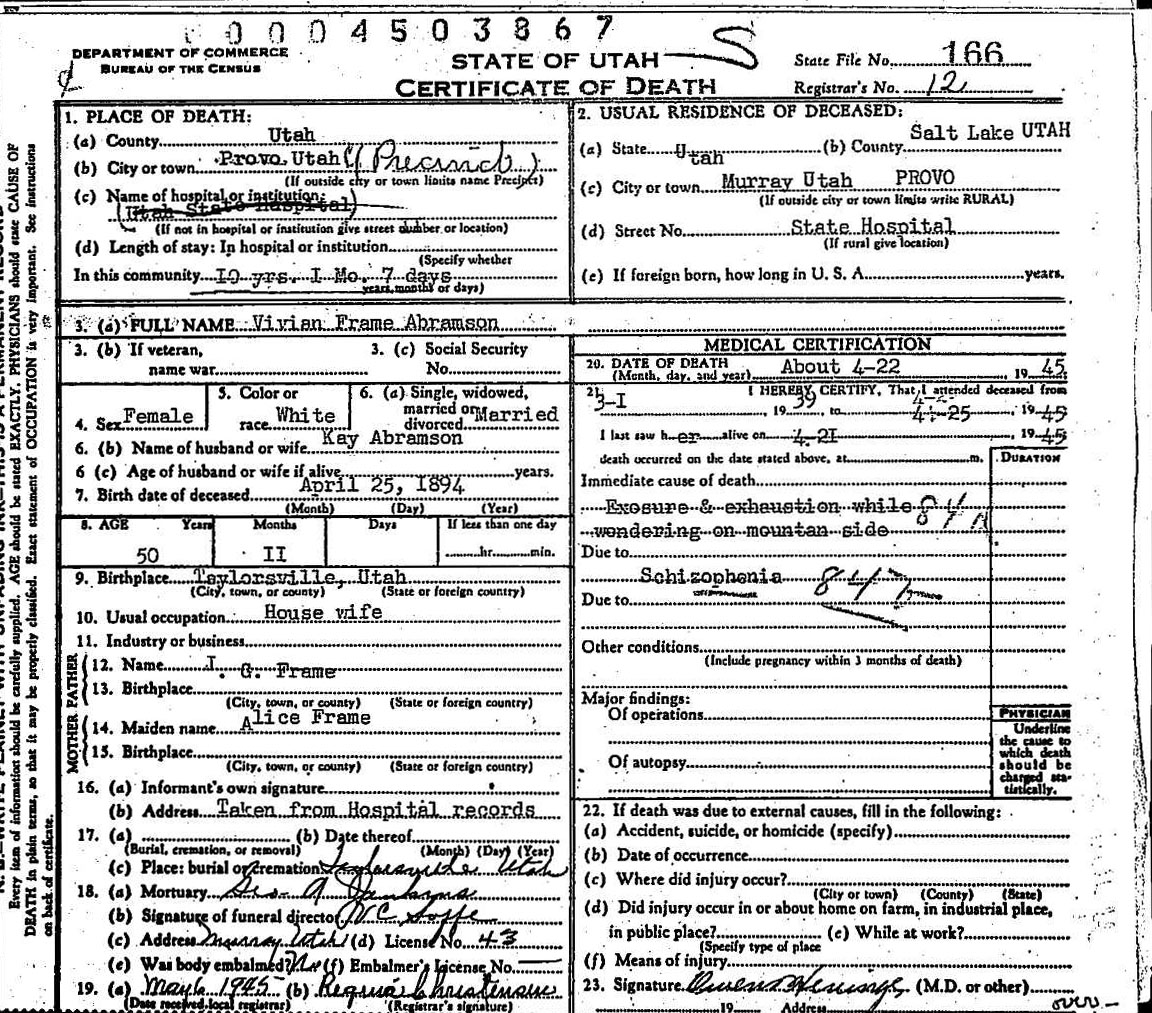 0004503867
DEPARTMENT OF COMMERCE
BUREAU OF THE CENSUS
STATE OF UTAH
CERTIFICATE OF DEATH
State File No. 166
Registrar's No. 12
1. PLACE OF DEATH:
(a) County Utah
(b) City or town Provo Utah (Precinct)
(If outside city or town limits name Precinct)
(c) Name of hospital or institution:
(Utah State Hospital)
(If not in hospital or institution give street number or location)
(d) Length of stay: In hospital or institution
(Specify whether
In this community IO yrs. I Mo. 7 days
years, months or days)
2. USUAL RESIDENCE OF DECEASED:
(a) State Utah (b) County Salt Lake UTAH
(c) City or town Murray Utah PROVO
(If outside city or town limits write RURAL)
(d) Street No. State Hospital
(If rural give location)
(e) If foreign born, how long in U. S. A. years.
3. (a) FULL NAME Vivian Frame Abramson
3. (b) If veteran, 3. (c) Social Security
name war No.
4. Sex Female 5. Color or race White 6. (a) Single, widowed, married or divorced Married
6. (b) Name of husband or wife Kay Abramson
6 (c) Age of husband or wife if alive years.
7. Birth date of deceased April 25, 1894
(Month) (Day) (Year)
8. AGE Years Months Days If less than one day
50 II hr. min.
9. Birthplace Taylorsville, Utah
(City, town, or county) (State or foreign country)
10. Usual occupation House wife
11. Industry or business
FATHER
12. Name J. G. Frame
13. Birthplace
(City, town, or county) (State or foreign country)
MOTHER
14. Maiden name Alice Frame
15. Birthplace
(City, town, or county) (State or foreign country)
16. (a) Informant's own signature
(b) Address Taken from Hospital records
17. (a) (b) Date thereof
(Burial, cremation, or removal) (Month) (Day) (Year)
(c) Place: burial or cremation Taylorsville Utah
18. (a) Mortuary Geo A
(b) Signature of funeral director
(c) Address Murray Utah (d) License No. 43
(e) Was body embalmed? No (f) Embalmer's License No.
19. (a) May 6 1945 (b) Regina Christensen
(Date received local registrar) (Registrar's signature)
MEDICAL CERTIFICATION
20. DATE OF DEATH About 4-22 1945
(Month, day, and year)
21. I HEREBY CERTIFY, That I attended deceased from
3-I 1939, to 4-25, 1945
I last saw her alive on 4-2I 1945
death occurred on the date stated above, at m. DURATION
Immediate cause of death
Exosure & exhaustion while
wondering on mountan side
Due to
Schizophenia
Due to
Other conditions
(Include pregnancy within 3 months of death)
Major findings:
Of operations
Of autopsy
PHYSICIAN
Underline
the cause to
which death
should be
charged sta-
tistically.
22. If death was due to external causes, fill in the following:
(a) Accident, suicide, or homicide (specify)
(b) Date of occurrence
(c) Where did injury occur?
(City or town) (County) (State)
(d) Did injury occur in or about home on farm, in industrial place,
in public place? (e) While at work?
(Specify type of place
(f) Means of injury
23. Signature (M.D. or other)
19 Address
over—
Every item of information should be carefully supplied. AGE should be stated EXACTLY. PHYSICIANS should state CAUSE OF
DEATH in plain terms, so that it may be properly classified. Exact statement of OCCUPATION is very important. See instructions
on back of certificate.